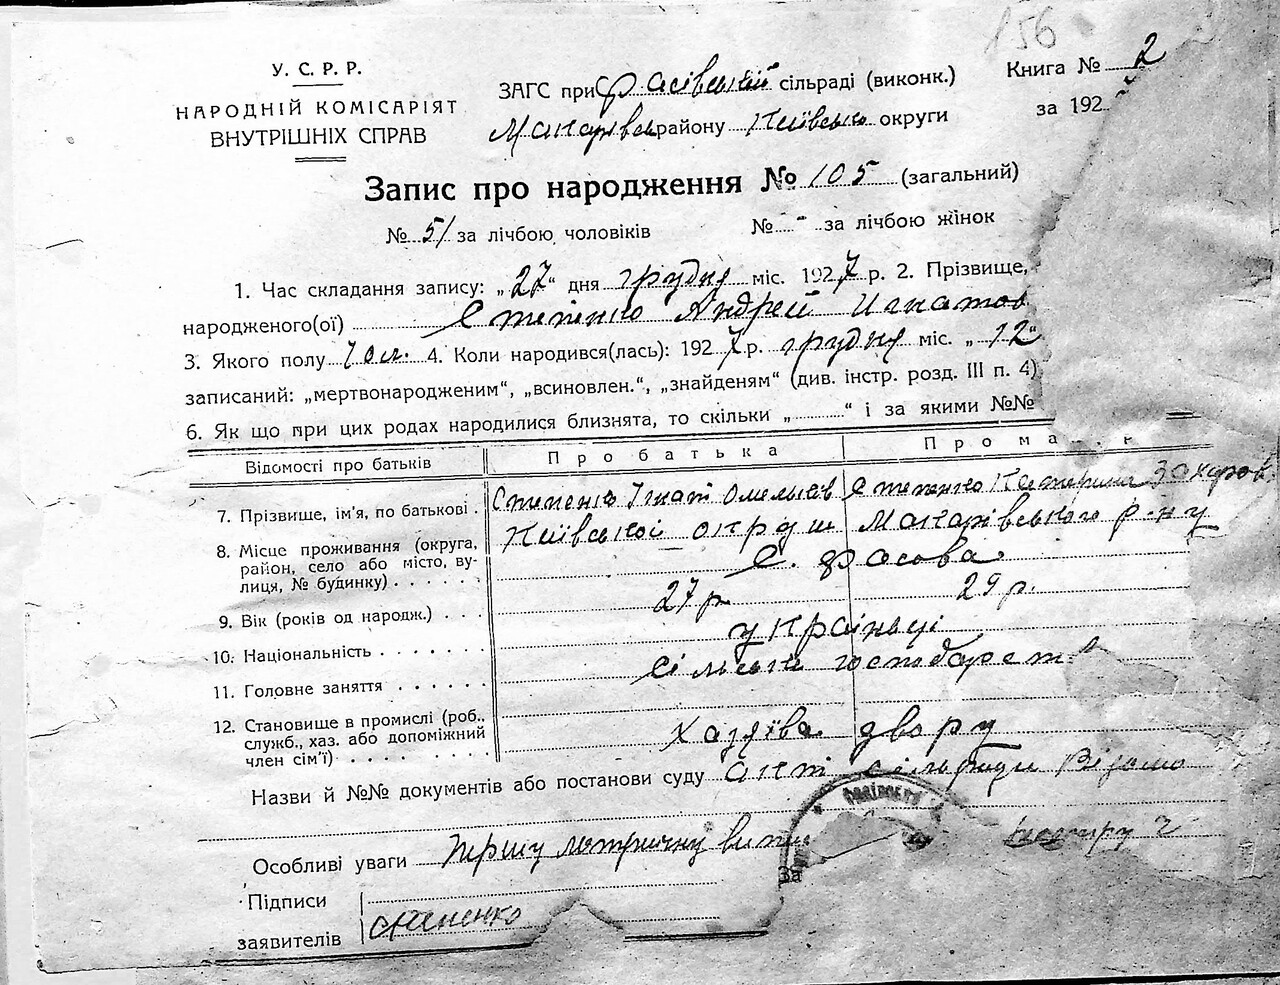 156
У. С. Р. Р.
НАРОДНІЙ КОМІСАРІЯТ
ВНУТРІШНІХ СПРАВ
ЗАГС при Фасівській сільраді (виконк.)
Макарівсь району Київсько округи
Книга № 2
за 192
Запис про народження № 105 (загальний)
№ 51 за лічбою чоловіків № - за лічбою жінок
1. Час складання запису: „27" дня грудня міс. 1927 р. 2. Прізвище,
народженого(ої) Степенко Андрей Игнатов
3. Якого полу чол. 4. Коли народився(лась): 1927 р. грудня міс. „12"
записаний: „мертвонародженим", „всиновлен.", „знайденям" (див. інстр. розд. III п. 4)
6. Як що при цих родах народилися близнята, то скільки „ " і за якими №№
Відомості про батьків Про батька Про ма
7. Прізвище, ім'я, по батькові Степенко Ігнат Омельків Степенко Катерина Захаров
8. Місце проживання (округа, район, село або місто, вулиця, № будинку) Київської округи Макарівського р-ну
с. Фасова
9. Вік (років од народж.) 27 р 29 р.
10. Національність українці
11. Головне заняття сільське господарст
12. Становище в промислі (роб., служб., хаз. або допоміжний член сім'ї) Хазяїва двору
Назви й №№ документів або постанови суду акт сільради Відомо
Особливі уваги Першу метричну випи
За
Підписи
заявителів